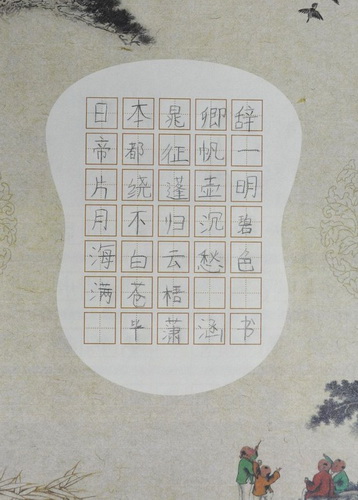 日本晁卿辞
帝都征帆一
片绕蓬壶明
月不归沉碧
海白云愁色
满苍梧
潇涵书